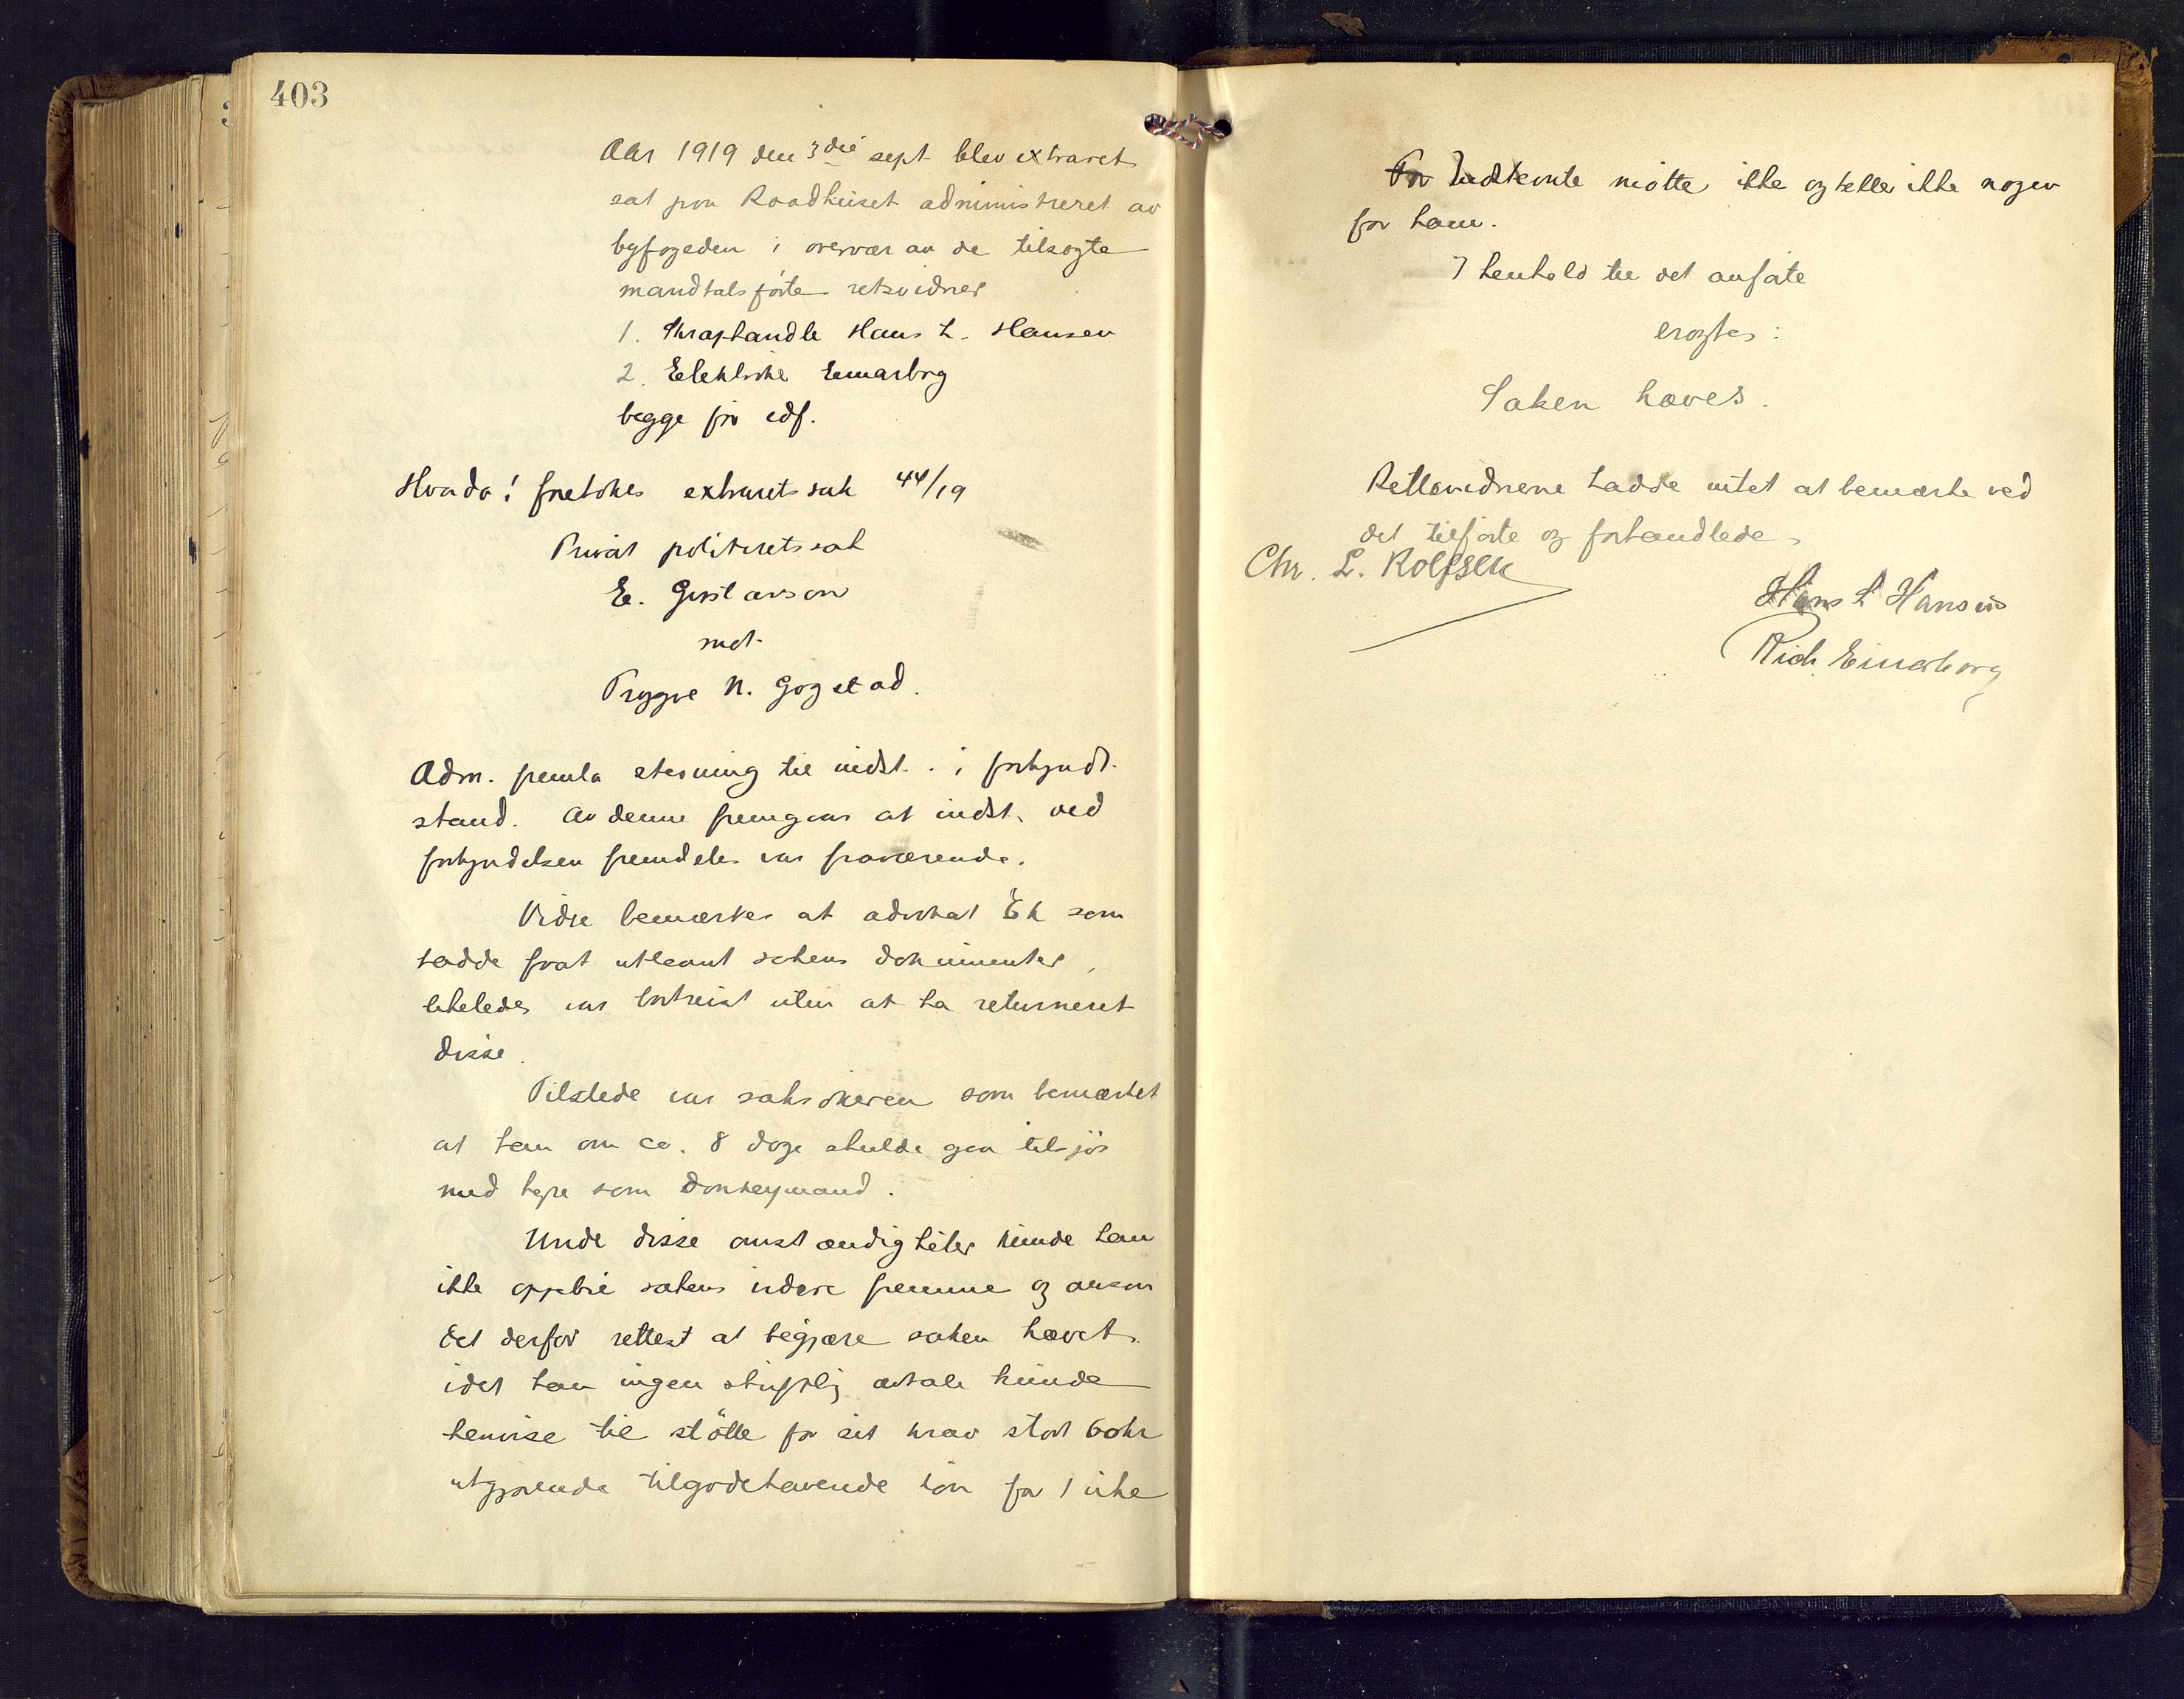 403
Aar 1919 den 3die sept. blev extraret
sat paa Raadhuset administreret av
byfogeden i overvær av de tilsagte
mandtalsførte retsvidner
1. Skraphandle Hans L. Hansen
2. Elektrike Einarborg
begge for edf.
Hvorda! foretokes extraretssak 44/19
Privat politiretssak
E. Gustavson
mot
Trygve N. Gogstad.
Adm. fremla stevning til indst. i forkyndt
stand. Av denne fremgaar at indst. ved
forkyndelsen fremdeles var fraværende.
Vidre bemerkes at advokat Ek som
hadde faat utlaant sakens dokumenter,
likeledes var bortreist uten at ha returneret
disse.
Tilstede var saksøkeren som bemærket
at han om ca. 8 dage skulde gaa tilsjøs
med hyre som Donkeymand.
Unde disse omstændigheter kunde han
ikke oppebie sakens videre fremme og ansaa
det derfor rettest at begjære saken hævet
idet han ingen skriftlig avtale kunde
henvise til støtte for sit krav stort 60 kr
utgjørende tilgodehavende løn for 1 uke
Indstevnte møtte ikke og heller ikke nogen
for ham.
I henhold til det anførte
eragtes:
Saken hæves.
Retsvidnerne hadde intet at bemærke ved
det tilførte og forhandlede.
Chr. L. Rolfsen
Hans L Hansen
Rich. Einarborg